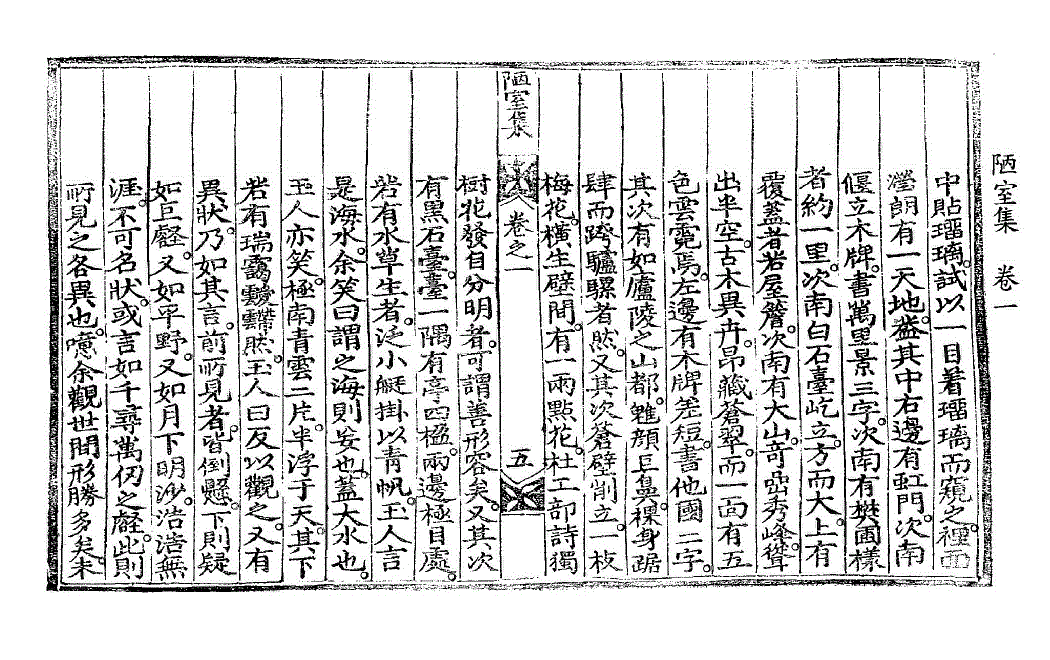 陋室集　卷一
中貼瑠璃。試以一目着瑠璃而窺之。裡面
瀅朗有一天地。盖其中右邊有虹門。次南
偃立木牌。書萬里景三字。次南有樊圃樣
者約一里。次南白石臺屹立。方而大。上有
覆蓋者若屋簷。次南有大山。奇嵒秀峰。聳
出半空。古木異卉。昂藏蒼翠。而一面有五
色雲霓焉。左邊有木牌差短。書他國二字。
其次有如廬陵之山都。雖顔巨鼻。裸身踞
肆而跨驢騾者然。又其次蒼壁削立。一枝
梅花。橫生壁間。有一兩點花。杜工部詩獨
陋室集
卷之一
五
樹花發自分明者。可謂善形容矣。又其次
有黑石臺。臺一隅有亭四楹。兩邊極目處。
若有水草生者。泛小艇掛以靑帆。玉人言
是海水。余笑曰謂之海則妄也。蓋大水也。
玉人亦笑。極南靑雲二片。半浮于天。其下
若有瑞靄靉靆然。玉人曰反以觀之。又有
異狀。乃如其言。前所見者。皆倒懸。下則疑
如巨壑。又如平野。又如月下明沙。浩浩無
涯。不可名狀。或言如千尋萬仞之壑。此則
所見之各異也。噫。余觀世間形勝多矣。未